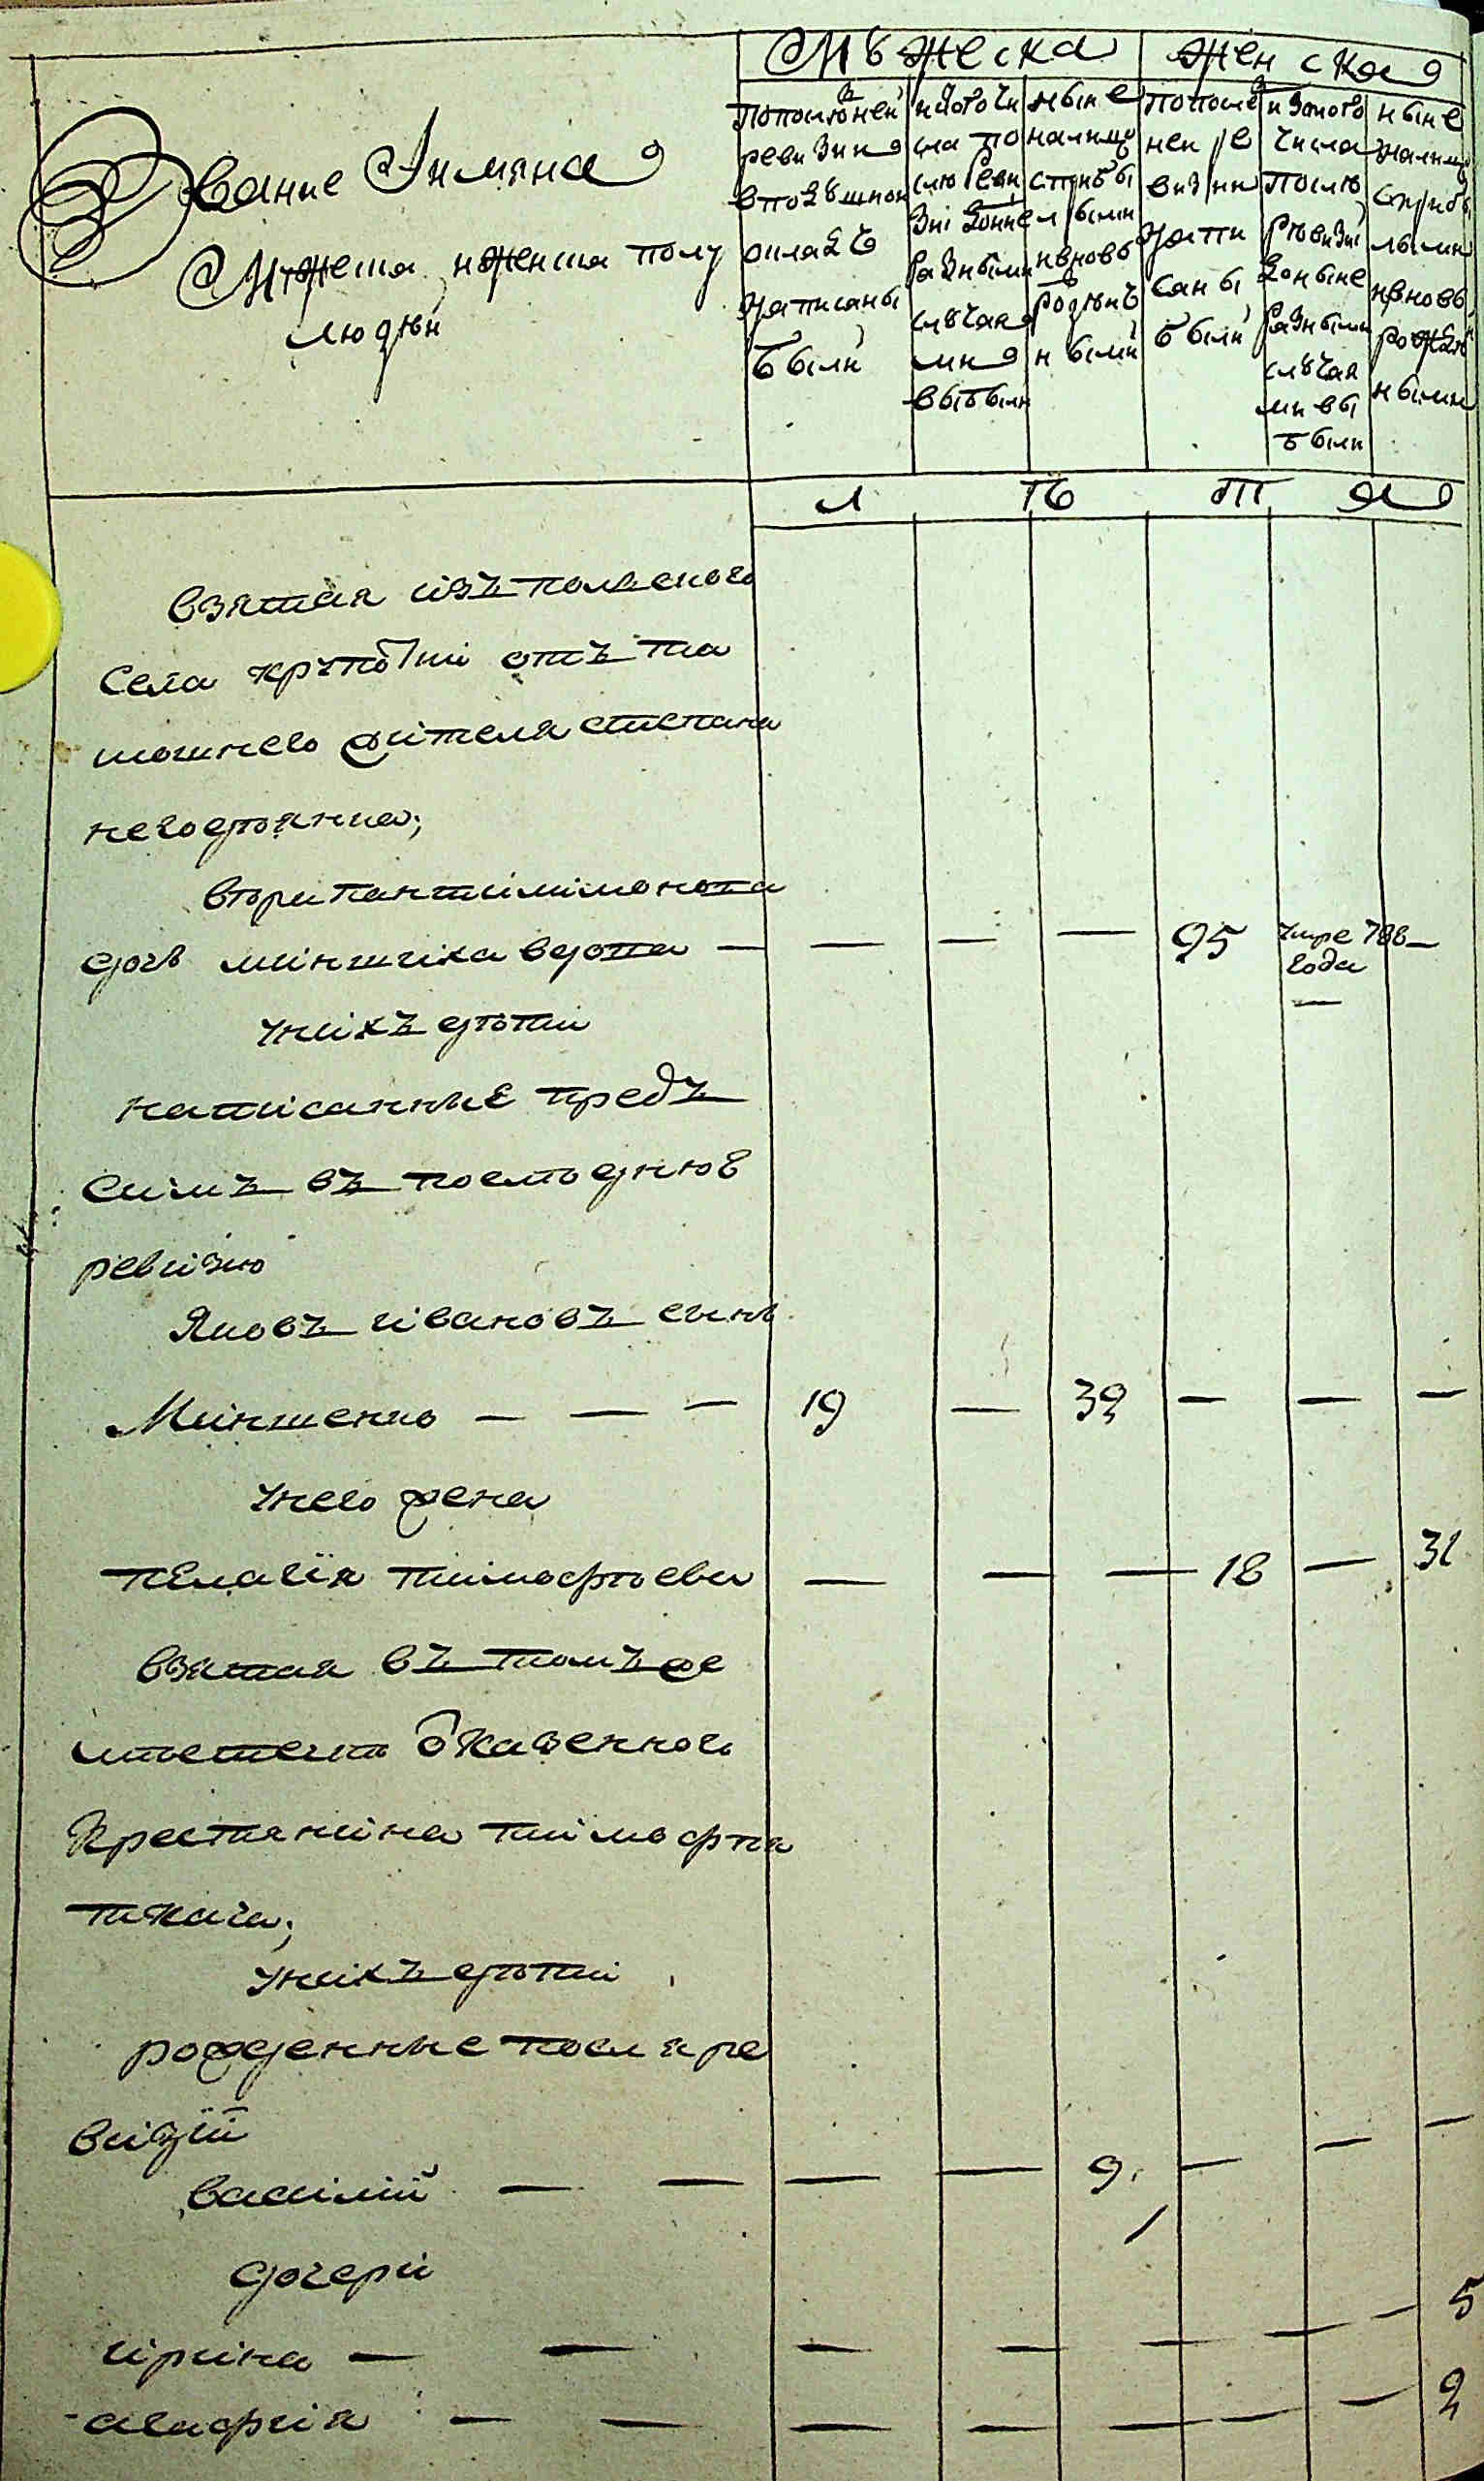 Мужеска
женская
Звание Имяна
Мужеска и женска полу
людѣй
По последней
ревизии
в подушной
оклад
написаны
были
и з того чи
сла по
сле реви
зиі до ныне
разными
случая
ми
выбыли
ныне
на лицо
с прибы
лыми
и вновь
рожден
ными
По после
ней ре
визии
напи
саны
были
и з того
числа
после
ревизиі
до ныне
разными
случая
ми вы
были
ныне
на лицо
с прибы
лыми
и вновь
рожден
ными
л ѣ т я
взятая изъ польского
села отъ та
мошнего жителя степана
втори пантилимонова
дочь миншика вдова — — — — 95 умре 788 —
года
—
у нихъ дѣти
написанные предъ
симъ въ последнюю
ревизию
Яковъ ивановъ сынъ
Миншенко — — — 19 — 39 — — —
у него жена
пелагія тимофѣева — — — 18 — 31
взятая въ томъ же
местечке казенного
крестянина тимофея
ткача;
у нихъ дѣти
рожденные посля ре
визіи
василий — — — — 9 — — —
дочери
ирина — — — — — — — 5
агафия — — — — — — — 2